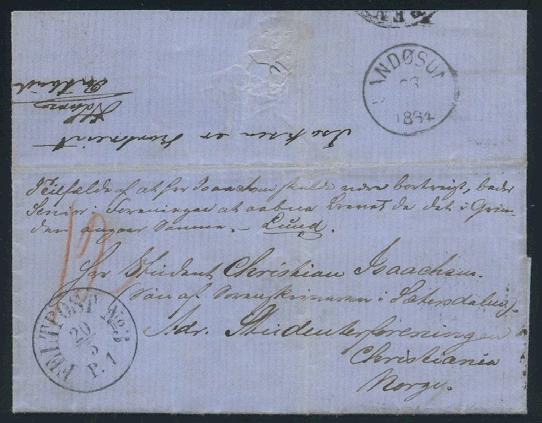 SANDØSUND
1864
Isaachsen er
Tilfælde af at Hr Isaachsen skulde være bortreist, bedes
Senior i Foreningen at aabne Brevet da det i Grun-
den angaar Samme. - Lund.
Hr Student Christian Isaachsen.
Søn af Sorenskriveren i Sætersdalen.
Adr. Studenterforeningen
Christiania
Norge.
FELTPOST No. 3
20/5
P. 1